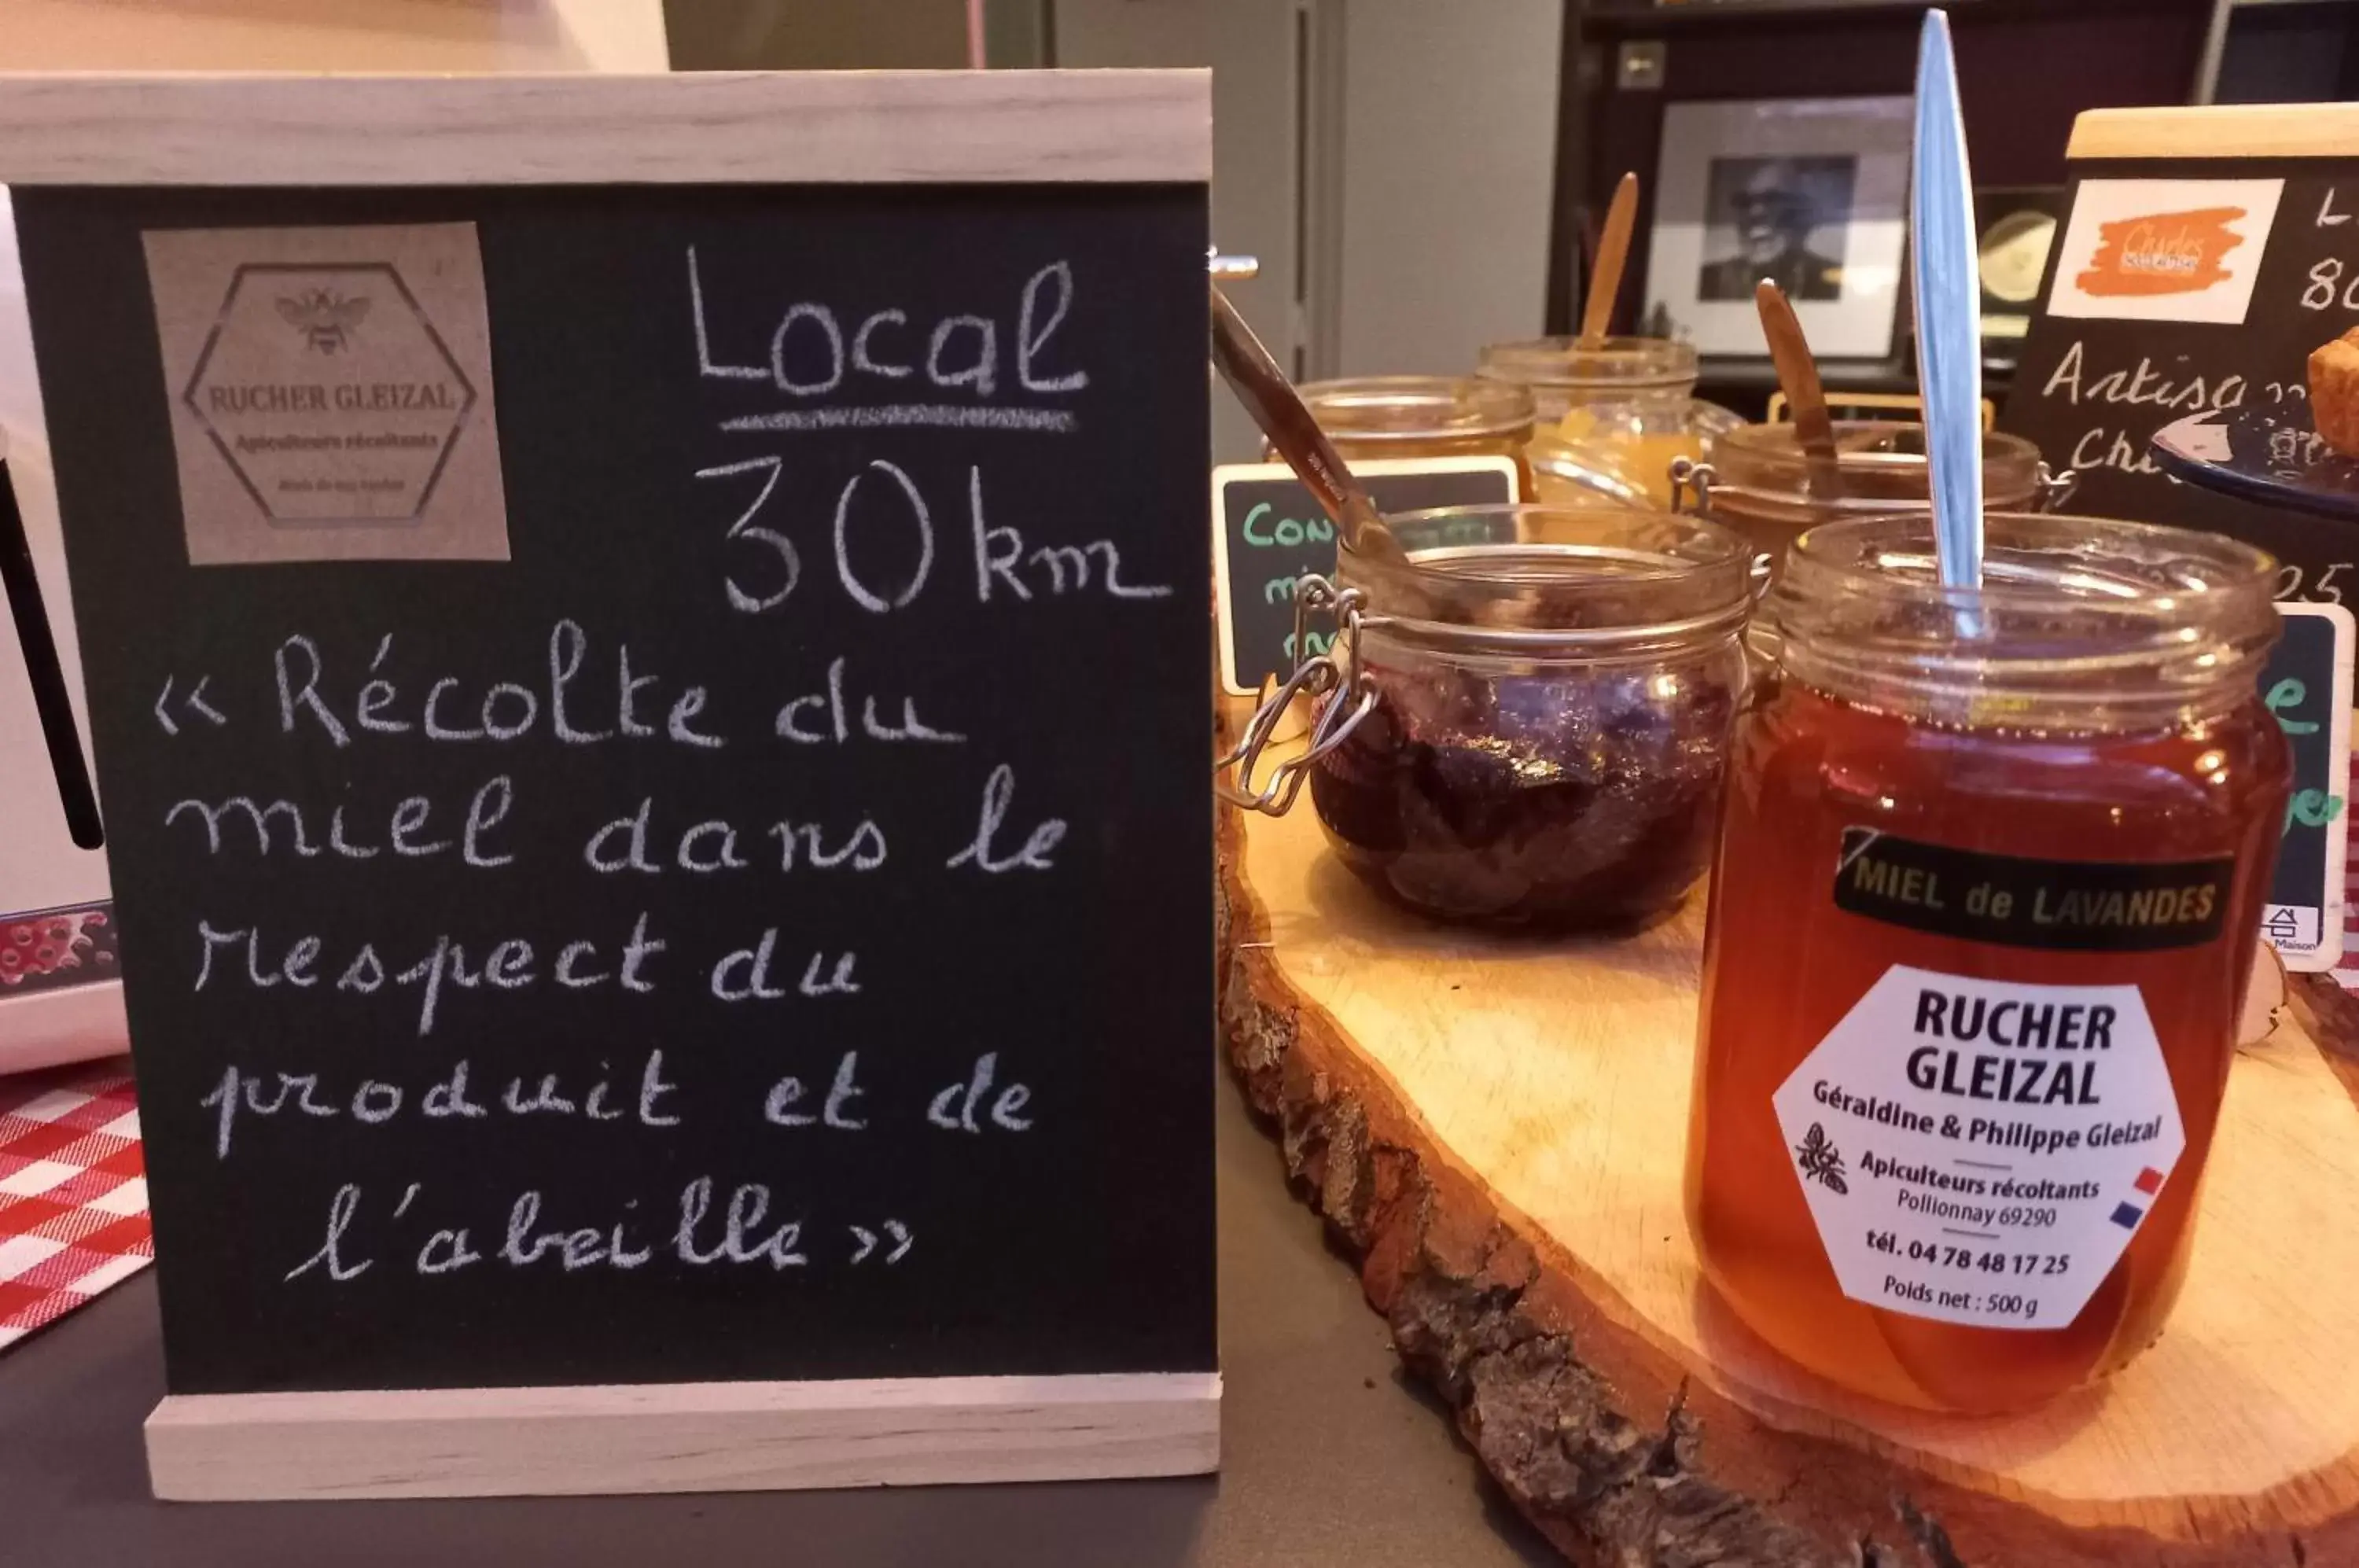 RUCHER GLEIZAL
Apiculteurs récoltants
Local
30 km
« Récolte du
miel dans le
respect du
produit et de
l'abeille »
MIEL de LAVANDES
RUCHER
GLEIZAL
Géraldine & Philippe Gleizal
Apiculteurs récoltants
Pollionnay 69290
tél. 04 78 48 17 25
Poids net : 500 g
Charles
Maison